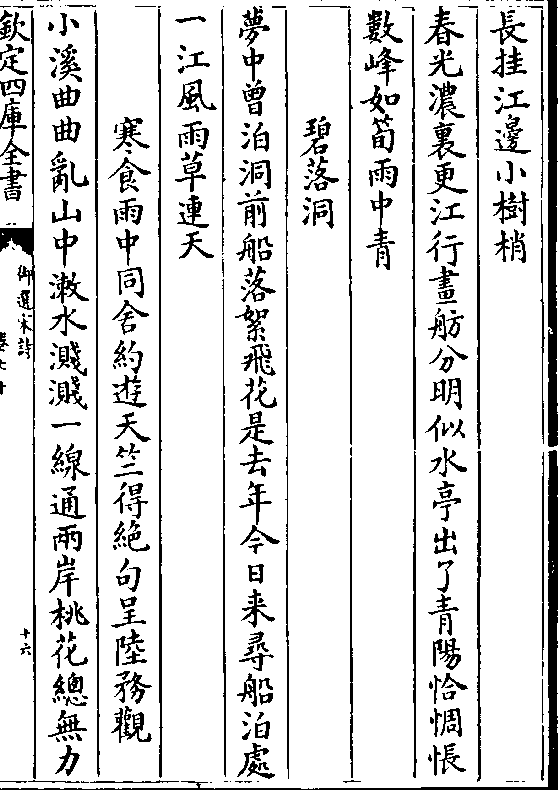 長挂江邊小樹梢
春光濃裏更江行畫舫分明似水亭出了青陽恰惆悵
數峰如筍雨中青
碧落洞
夢中曾泊洞前船落絮飛花是去年今日来尋船泊處
一江風雨草連天
寒食雨中同舍約遊天竺得絶句呈陸務觀
小溪曲曲亂山中漱水濺濺一線通兩岸桃花總無力
欽定四庫全書
御選宋詩
十六